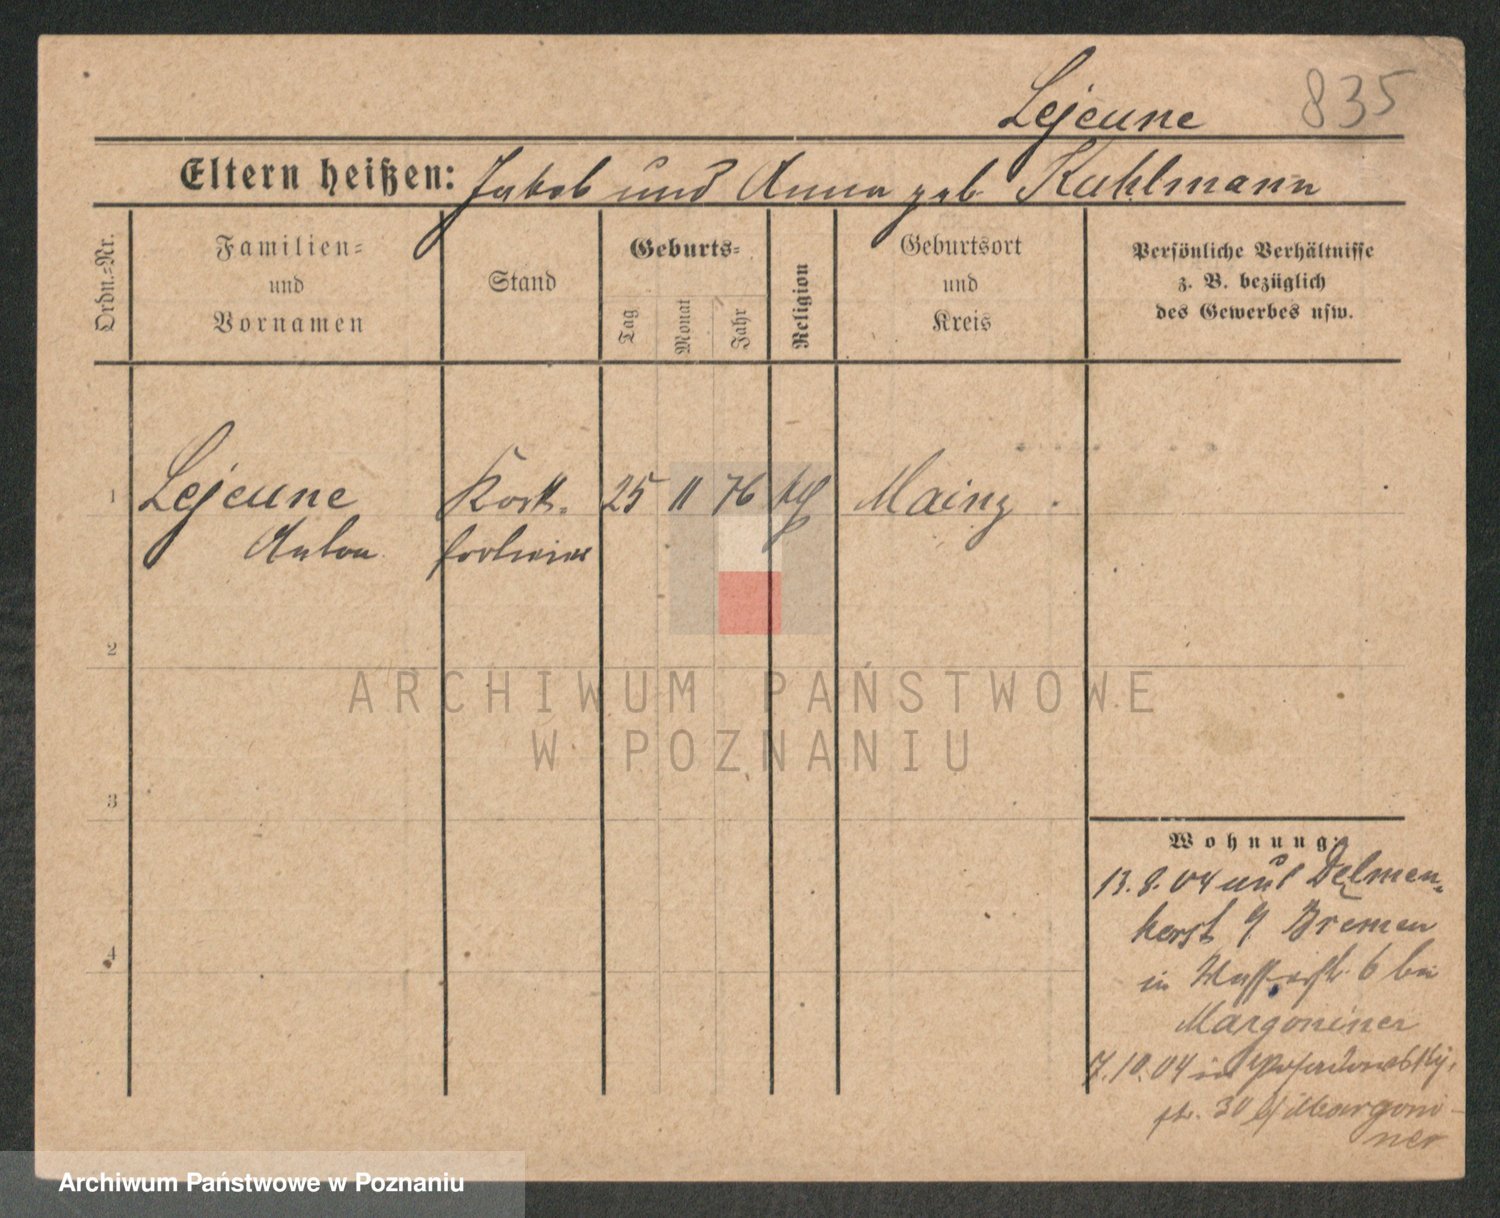 Lejeune 835
Eltern heißen: Jakob und Anna geb. Kuhlmann
Ordn.=Nr.
Familien=
und
Vornamen
Stand
Geburts=
Tag
Monat
Jahr
Religion
Geburtsort
und
Kreis
Persönliche Verhältnisse
z. B. bezüglich
des Gewerbes usw.
1 Lejeune 25 11 76 Mainz.
Anton
2
3
4
Wohnung:
13. 8. 04 aus Delmen-
horst / Bremen
in 6 bei
Margoniner
7. 10. 04 in
str. 30 b/ Margoni-
ner
ARCHIWUM PAŃSTWOWE
W POZNANIU
Archiwum Państwowe w Poznaniu